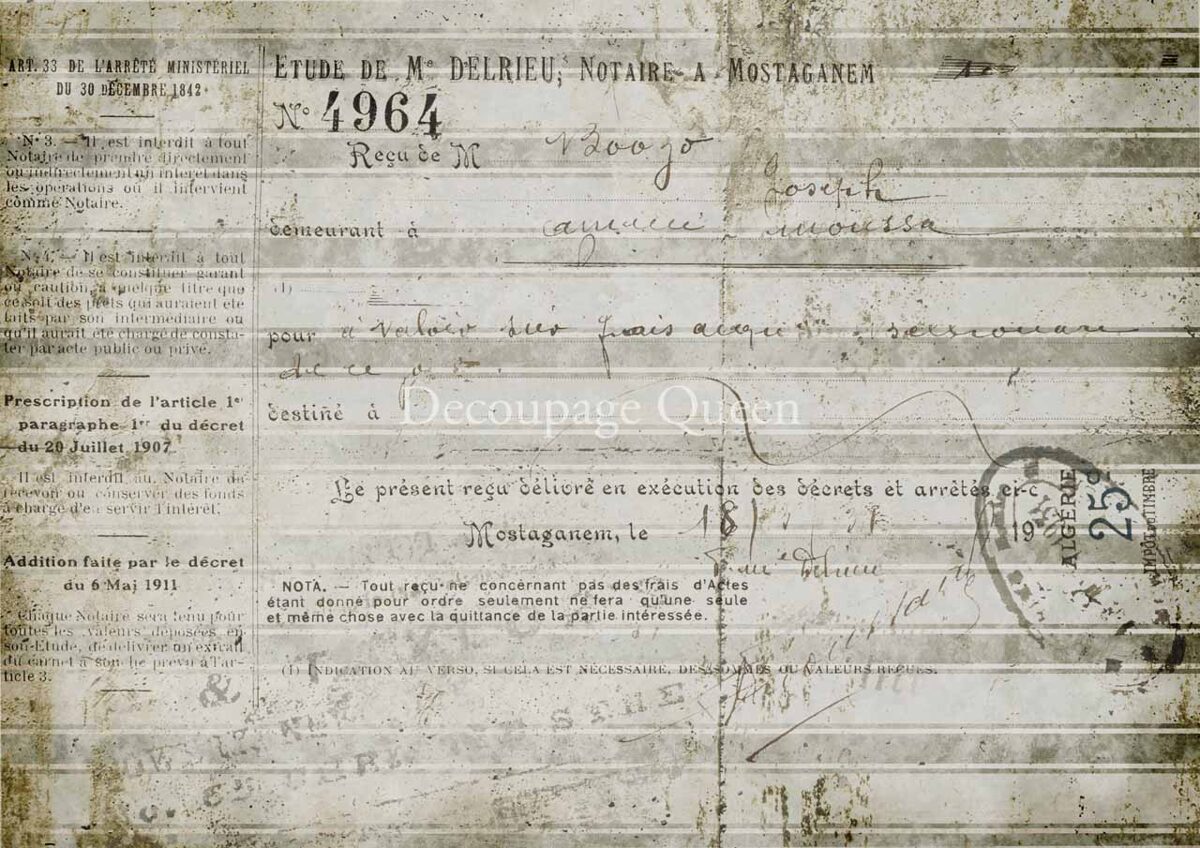 ART. 33 DE L'ARRÊTÉ MINISTÉRIEL
DU 30 DÉCEMBRE 1842
N° 3. — Il est interdit à tout
Notaire de prendre directement
ou indirectement un intérêt dans
les opérations où il intervient
comme Notaire.
N° 4. — Il est interdit à tout
Notaire de se constituer garant
ou caution à quelque titre que
ce soit des prêts qui auraient été
faits par son intermédiaire ou
qu'il aurait été chargé de consta-
ter par acte public ou privé.
Prescription de l'article 1er
paragraphe 1er du décret
du 20 Juillet 1907
Il est interdit au Notaire de
recevoir ou conserver des fonds
à charge d'en servir l'intérêt.
Addition faite par le décret
du 6 Mai 1911
Chaque Notaire sera tenu pour
toutes les valeurs déposées en
son Etude, de délivrer un extrait
du carnet à souche prévu à l'ar-
ticle 3.
ETUDE DE Me DELRIEU, NOTAIRE A MOSTAGANEM
N° 4964
Reçu de M
Joseph
demeurant à moussa
(1)
pour à valoir sur frais
de ce jour
destiné à
Decoupage Queen
Le présent reçu délivré en exécution des décrets et arrêtés ci-c
Mostaganem, le 18 19
NOTA. — Tout reçu ne concernant pas des frais d'Actes
étant donné pour ordre seulement ne fera qu'une seule
et même chose avec la quittance de la partie intéressée.
(1) INDICATION AU VERSO, SI CELA EST NÉCESSAIRE, DES SOMMES OU VALEURS REÇUES.
ALGÉRIE
25c